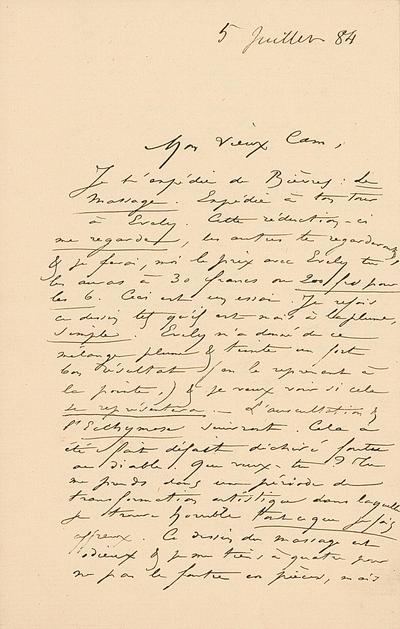 5 Juillet 84
Mon vieux Cam,
Je t'expédie de Bièvres : Le
Massage. Expédie à ton tour
à Evely. Cette rédaction-ci
me regarde, les autres te regarderont,
& je ferai, moi le prix avec Evely tu
les auras à 30 francs ou 200 frs pour
les 6. Ceci est un essai. Je refais
ce dessin tel qu'il est mais à la plume,
simple. Evely m'a donné de ce
mélange plume & teinte un fort
bon résultat) on le reprenant à
la pointe,) & je veux voir si cela
se représentera. — L'auscultation &
l'Ecthymose suivront. Cela a
été fait défait déchiré foutre
au diable. Que veux-tu ? Tu
me prends dans une période de
transformation artistique dans laquelle
je trouve horrible tout ce que je fais
affreux. Ce dessin du massage est
odieux & je me tiens à quatre pour
ne pas le foutre en pièces, mais